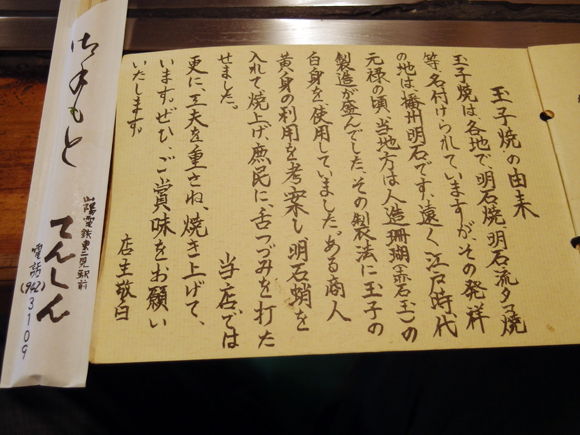 玉子焼の由来
玉子焼は、各地で、明石焼、明石流タコ焼
等、名付けられていますが、その発祥
の地は、播州明石です。遠く、江戸時代
元禄の頃、当地方は人造珊瑚(赤石玉)の
製造が盛んでした。その製法に玉子の
白身を使用していました。ある商人
黄身の利用を考案し、明石蛸を
入れて焼上げ、庶民に、舌つづみを打た
せました。　当店では
更に、工夫を重さね、焼き上げて、
います。ぜひ、ご賞味をお願い
いたします。
店主敬白
御手もと
山陽電鉄東二見駅前
てんしん
電話(942)3109